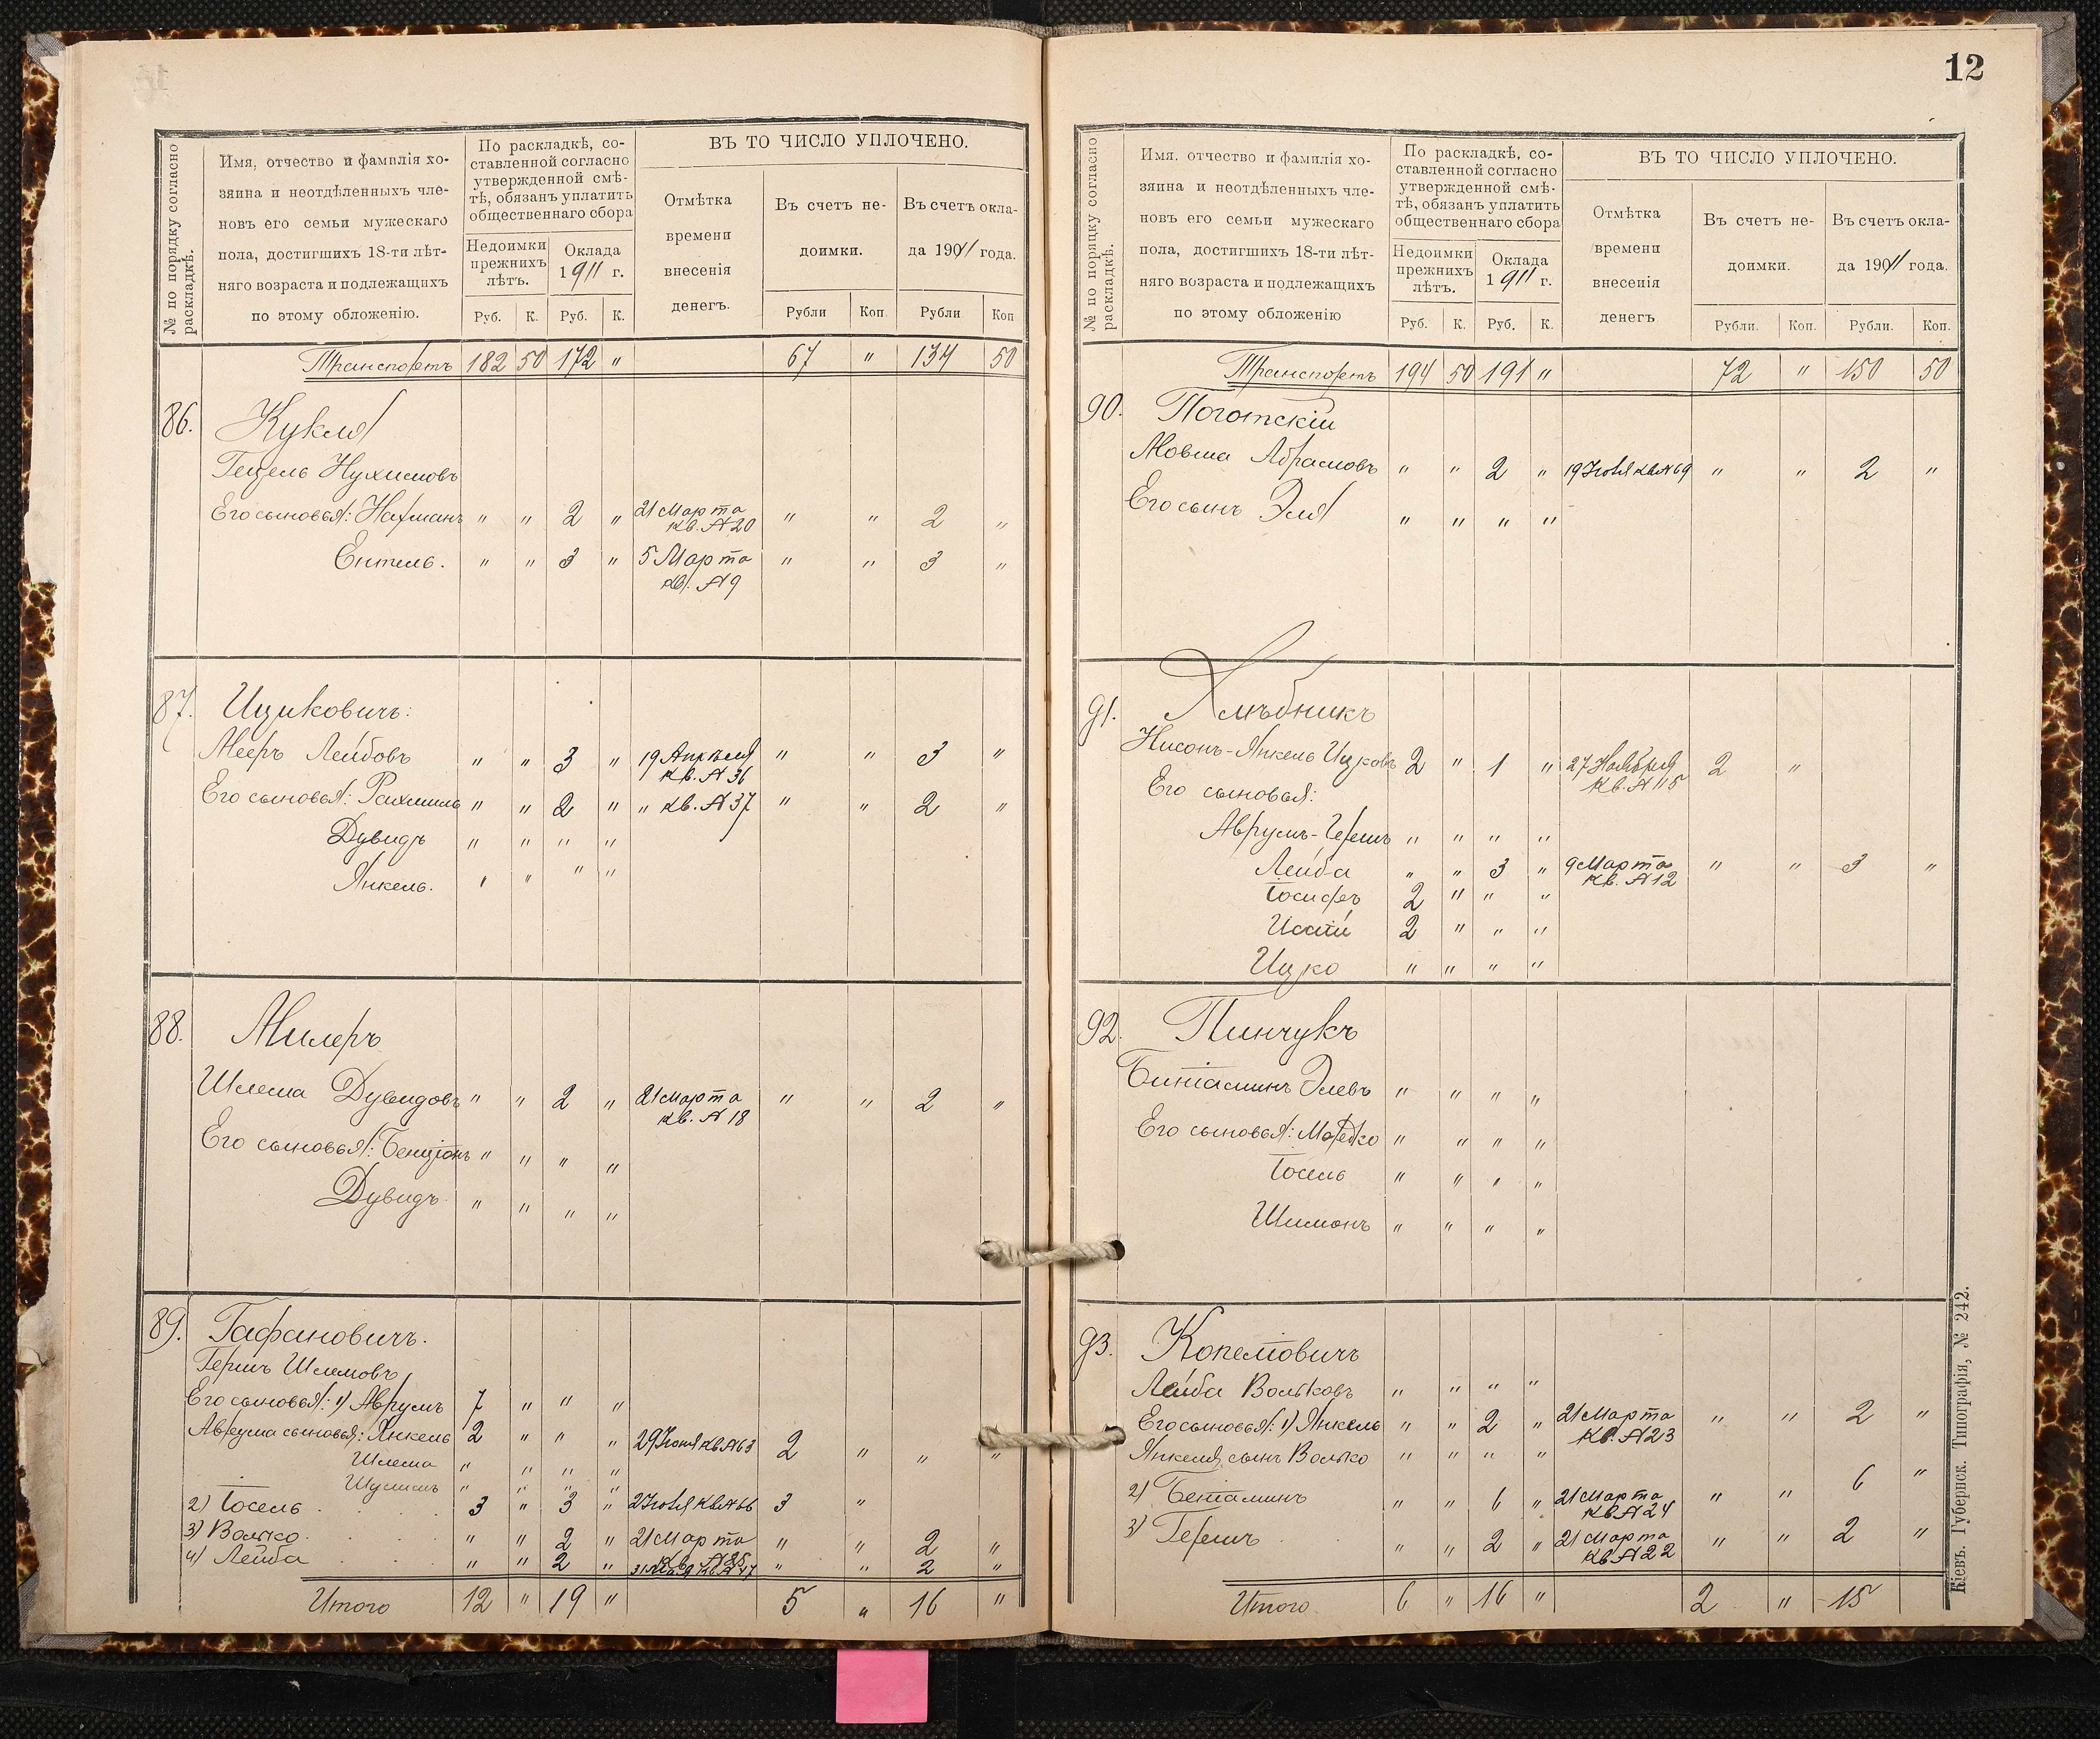 № по порядку согласно раскладкѣ.
Имя, отчество и фамилія хо-
зяина и неотдѣленныхъ чле-
новъ его семьи мужескаго
пола, достигшихъ 18-ти лѣт-
няго возраста и подлежащихъ
по этому обложенію.
По раскладкѣ, со-
ставленной согласно
утвержденной смѣ-
тѣ, обязанъ уплатить
общественнаго сбора
Недоимки прежнихъ лѣтъ.
Оклада 1911 г.
Руб. К. Руб. К.
ВЪ ТО ЧИСЛО УПЛОЧЕНО.
Отмѣтка времени внесенія денегъ.
Въ счетъ не-
доимки.
Въ счетъ окла-
да 1911 года.
Рубли Коп. Рубли Коп
Транспортъ 182 50 172 " 67 " 134 50
86. Кукля
Гецель Нухимовъ
Его сыновья: Нафманъ " " 2 " 21 Марта кв. № 20 " " 2 "
Ентель. " " 3 " 5 Марта кв. № 9 " " 3 "
87. Ицковичъ:
Мееръ Лейбовъ " " 3 " 19 Апрѣля кв. № 36 " " 3 "
Его сыновья: Рахмиль " " 2 " " кв. № 37 " " 2 "
Дувидъ " " " "
Янкель. " " " "
88. Милеръ
Шлема Дувидовъ " " 2 " 21 Марта кв. № 18 " " 2 "
Его сыновья: Бенціонъ " " " "
Дувидъ " " " "
89. Гафановичъ.
Гершъ Шлемовъ
Его сыновья: 1) Аврумъ 7 " " "
Аврума сыновья: Янкель 2 " " " 29 Іюня кв № 63 2 " " "
Шлема " " " "
Шулимъ " " " "
2) Іосель 3 " 3 " 2 Іюля кв № 66 3 "
3) Волько " " 2 " 21 Марта кв. № 25 " " 2 "
4) Лейба " " 2 " " " 2 "
Итого 12 " 19 " 5 " 16 "
12
№ по порядку согласно раскладкѣ.
Имя, отчество и фамилія хо-
зяина и неотдѣленныхъ чле-
новъ его семьи мужескаго
пола, достигшихъ 18-ти лѣт-
няго возраста и подлежащихъ
по этому обложенію
По раскладкѣ, со-
ставленной согласно
утвержденной смѣ-
тѣ, обязанъ уплатить
общественнаго сбора
Недоимки прежнихъ лѣтъ.
Оклада 1911 г.
Руб. К. Руб. К.
ВЪ ТО ЧИСЛО УПЛОЧЕНО.
Отмѣтка времени внесенія денегъ
Въ счетъ не-
доимки.
Въ счетъ окла-
да 1911 года.
Рубли. Коп. Рубли. Коп.
Транспортъ 194 50 191 " 72 " 150 50
90. Поготскій
Мовша Абрамовъ " " 2 " 19 Іюля кв № 69 " " 2 "
Его сынъ Эля " " " "
91. Хлѣбникъ
Нисонъ-Янкель Ицковъ 2 " 1 " 27 Ноября кв. № 115 2 "
Его сыновья:
Аврумъ-Гершъ " " " "
Лейба " " 3 " 9 Марта кв. № 12 " " 3 "
Іосифъ 2 " " "
Исай 2 " " "
Ицко " " " "
92. Пинчукъ
Биніаминъ Элевъ " " " "
Его сыновья: Мордко " " " "
Іосель " " " "
Шимонъ " " " "
93. Копеліовичъ
Лейба Вольковъ " " " "
Его сыновья: 1) Янкель " " 2 " 21 Марта кв. № 23 " " 2 "
Янкеля сынъ Волько " " " "
2) Беніаминъ " " 6 " 21 Марта кв. № 24 " " 6 "
3) Гершъ " " 2 " 21 Марта кв № 22 " " 2 "
Итого 6 " 16 " 2 " 15
Кіевъ. Губернск. Типографія, № 242.